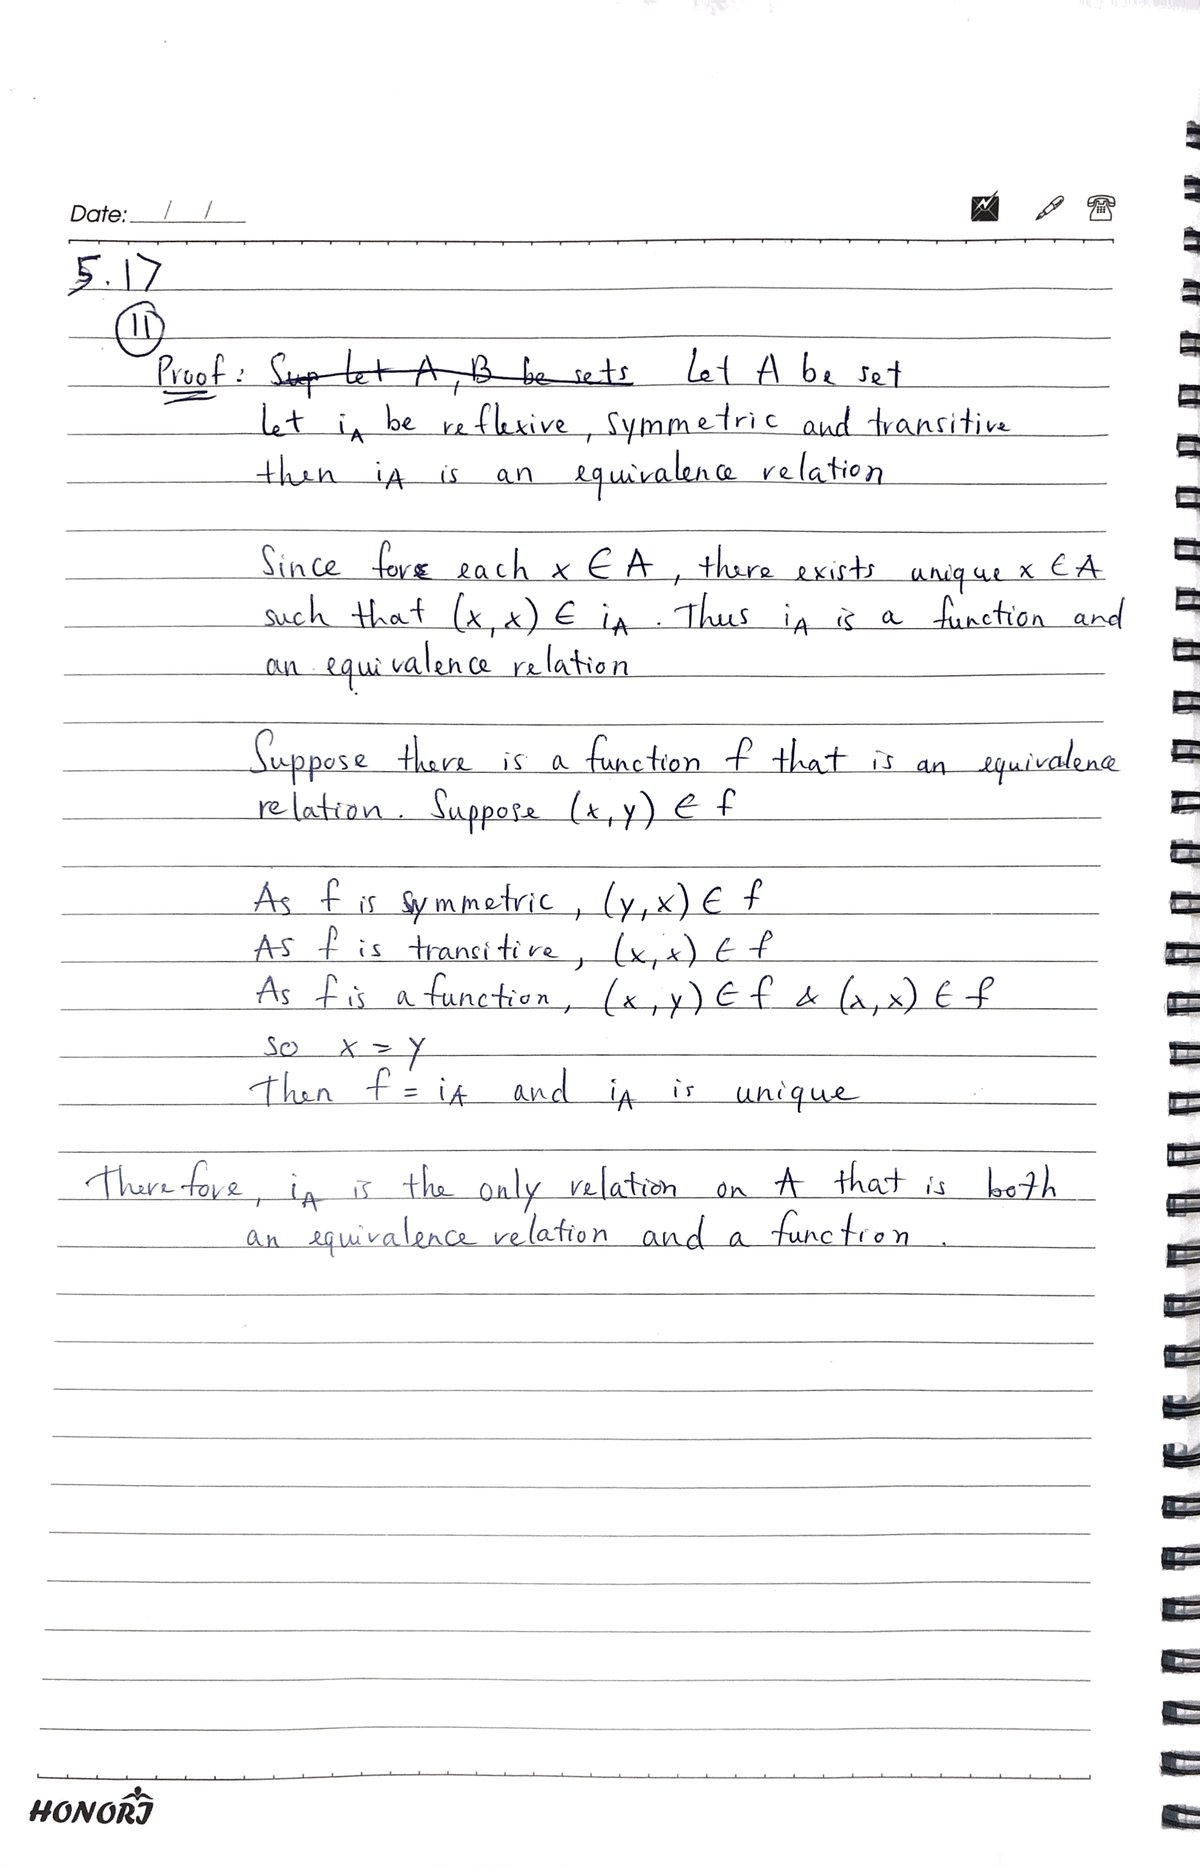 Date: / /
5.17
11
Proof: Sup let A, B be sets Let A be set
Let iA be reflexive, symmetric and transitive
then iA is an equivalence relation
Since for each x ∈ A, there exists unique x ∈ A
such that (x, x) ∈ iA. Thus iA is a function and
an equivalence relation
Suppose there is a function f that is an equivalence
relation. Suppose (x, y) ∈ f
As f is symmetric, (y, x) ∈ f
As f is transitive, (x, x) ∈ f
As f is a function, (x, y) ∈ f & (x, x) ∈ f
so x = y
Then f = iA and iA is unique
Therefore, iA is the only relation on A that is both
an equivalence relation and a function.
HONORJ